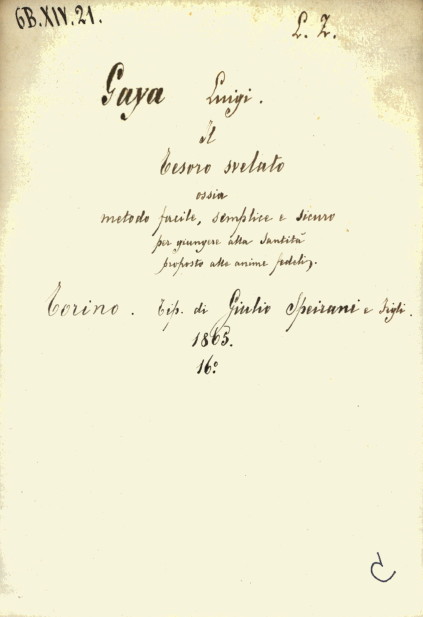 6B.XIV.21.
L. Z.
Gaya Luigi.
Il
Tesoro svelato
ossia
metodo facile, semplice e sicuro
per giungere alla Santità
proposto alle anime fedeli.
Torino. Tip. di Giulio Speirani e Figli.
1863.
16º
C